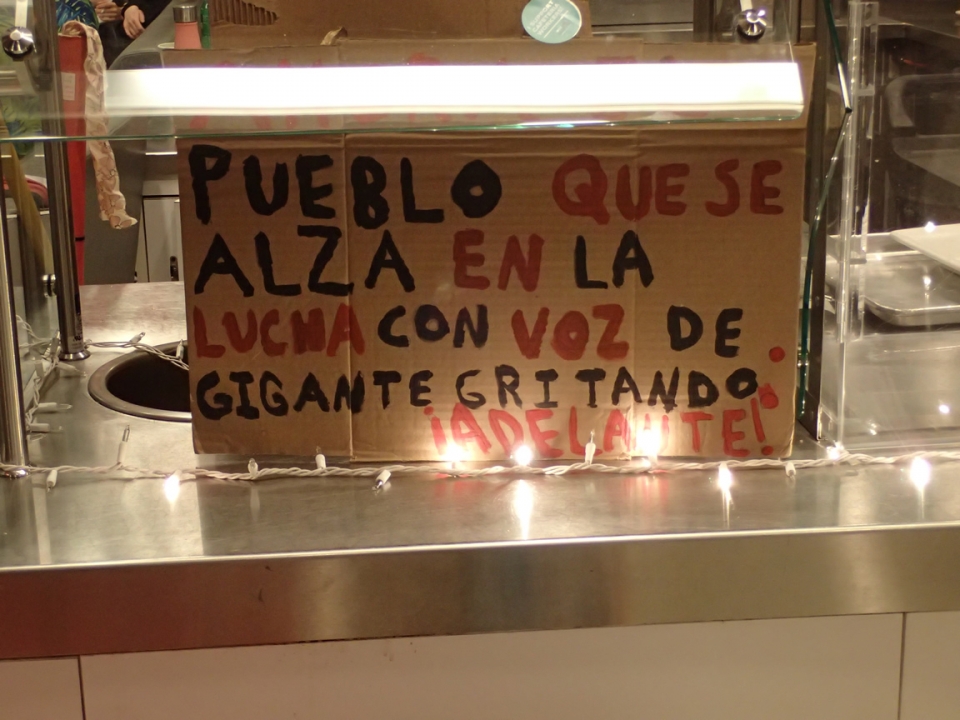 PUEBLO QUE SE
ALZA EN LA
LUCHA CON VOZ DE
GIGANTE GRITANDO:
¡ADELANTE!